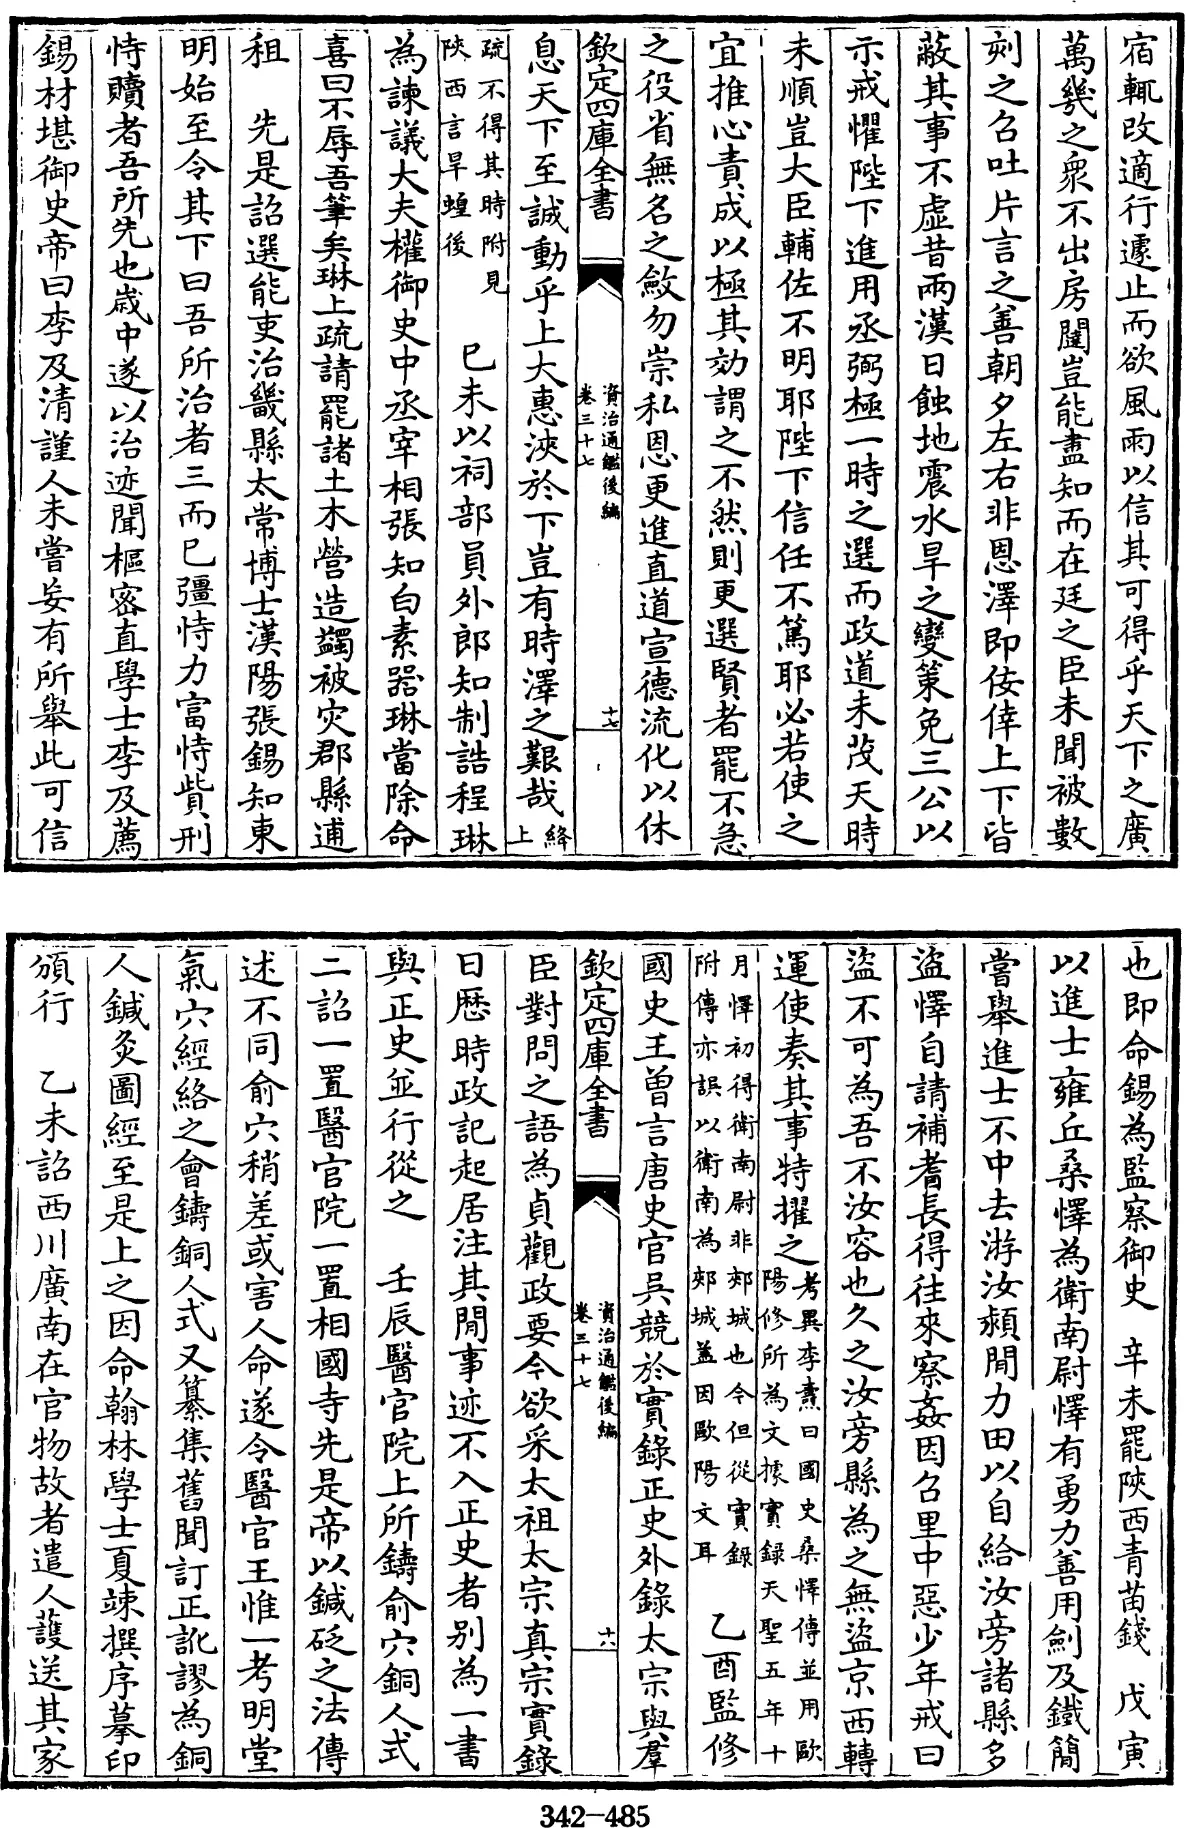 宿輒改適行遽止而欲風雨以信其可得乎天下之廣
萬幾之衆不出房闥豈能盡知而在廷之臣未聞被數
刻之召吐片言之善朝夕左右非恩澤即佞倖上下皆
蔽其事不虛昔兩漢日蝕地震水旱之變策免三公以
示戒懼陛下進用丞弼極一時之選而政道未茂天時
未順豈大臣輔佐不明耶陛下信任不篤耶必若使之
宜推心責成以極其効謂之不然則更選賢者罷不急
之役省無名之斂勿崇私恩更進直道宣德流化以休
欽定四庫全書 資治通鑑後編 卷三十七 十七
息天下至誠動乎上大惠浹於下豈有時澤之艱哉絳上
疏不得其時附見陜西言旱蝗後 已未以祠部員外郎知制誥程琳
為諫議大夫權御史中丞宰相張知白素器琳當除命
喜曰不辱吾筆矣琳上疏請罷諸土木營造蠲被灾郡縣逋
租 先是詔選能吏治畿縣太常博士漢陽張錫知東
明始至令其下曰吾所治者三而巳彊恃力富恃貲刑
恃贖者吾所先也歳中遂以治迹聞樞密直學士李及薦
錫材堪御史帝曰李及清謹人未嘗妄有所舉此可信
也即命錫為監察御史 辛未罷陜西青苗錢 戊寅
以進士雍丘桑懌為衛南尉懌有勇力善用劍及鐵簡
嘗舉進士不中去游汝潁間力田以自給汝旁諸縣多
盜懌自請補耆長得往來察姦因召里中惡少年戒曰
盜不可為吾不汝容也久之汝旁縣為之無盜京西轉
運使奏其事特擢之考異李燾曰國史桑懌傳並用歐陽修所為文據實録天聖五年十
月懌初得衛南尉非郟城也今但從實録附傳亦誤以衛南為郟城盖因歐陽文耳 乙酉監修
國史王曾言唐史官吳兢於實錄正史外錄太宗與羣
欽定四庫全書 資治通鑑後編 卷三十七 十六
臣對問之語為貞觀政要今欲采太祖太宗真宗實錄
日歷時政記起居注其間事迹不入正史者别為一書
與正史並行從之 壬辰醫官院上所鑄俞穴銅人式
二詔一置醫官院一置相國寺先是帝以鍼砭之法傳
述不同俞穴稍差或害人命遂令醫官王惟一考明堂
氣穴經絡之會鑄銅人式又纂集舊聞訂正訛謬為銅
人鍼灸圖經至是上之因命翰林學士夏竦撰序摹印
頒行 乙未詔西川廣南在官物故者遣人護送其家
342-485